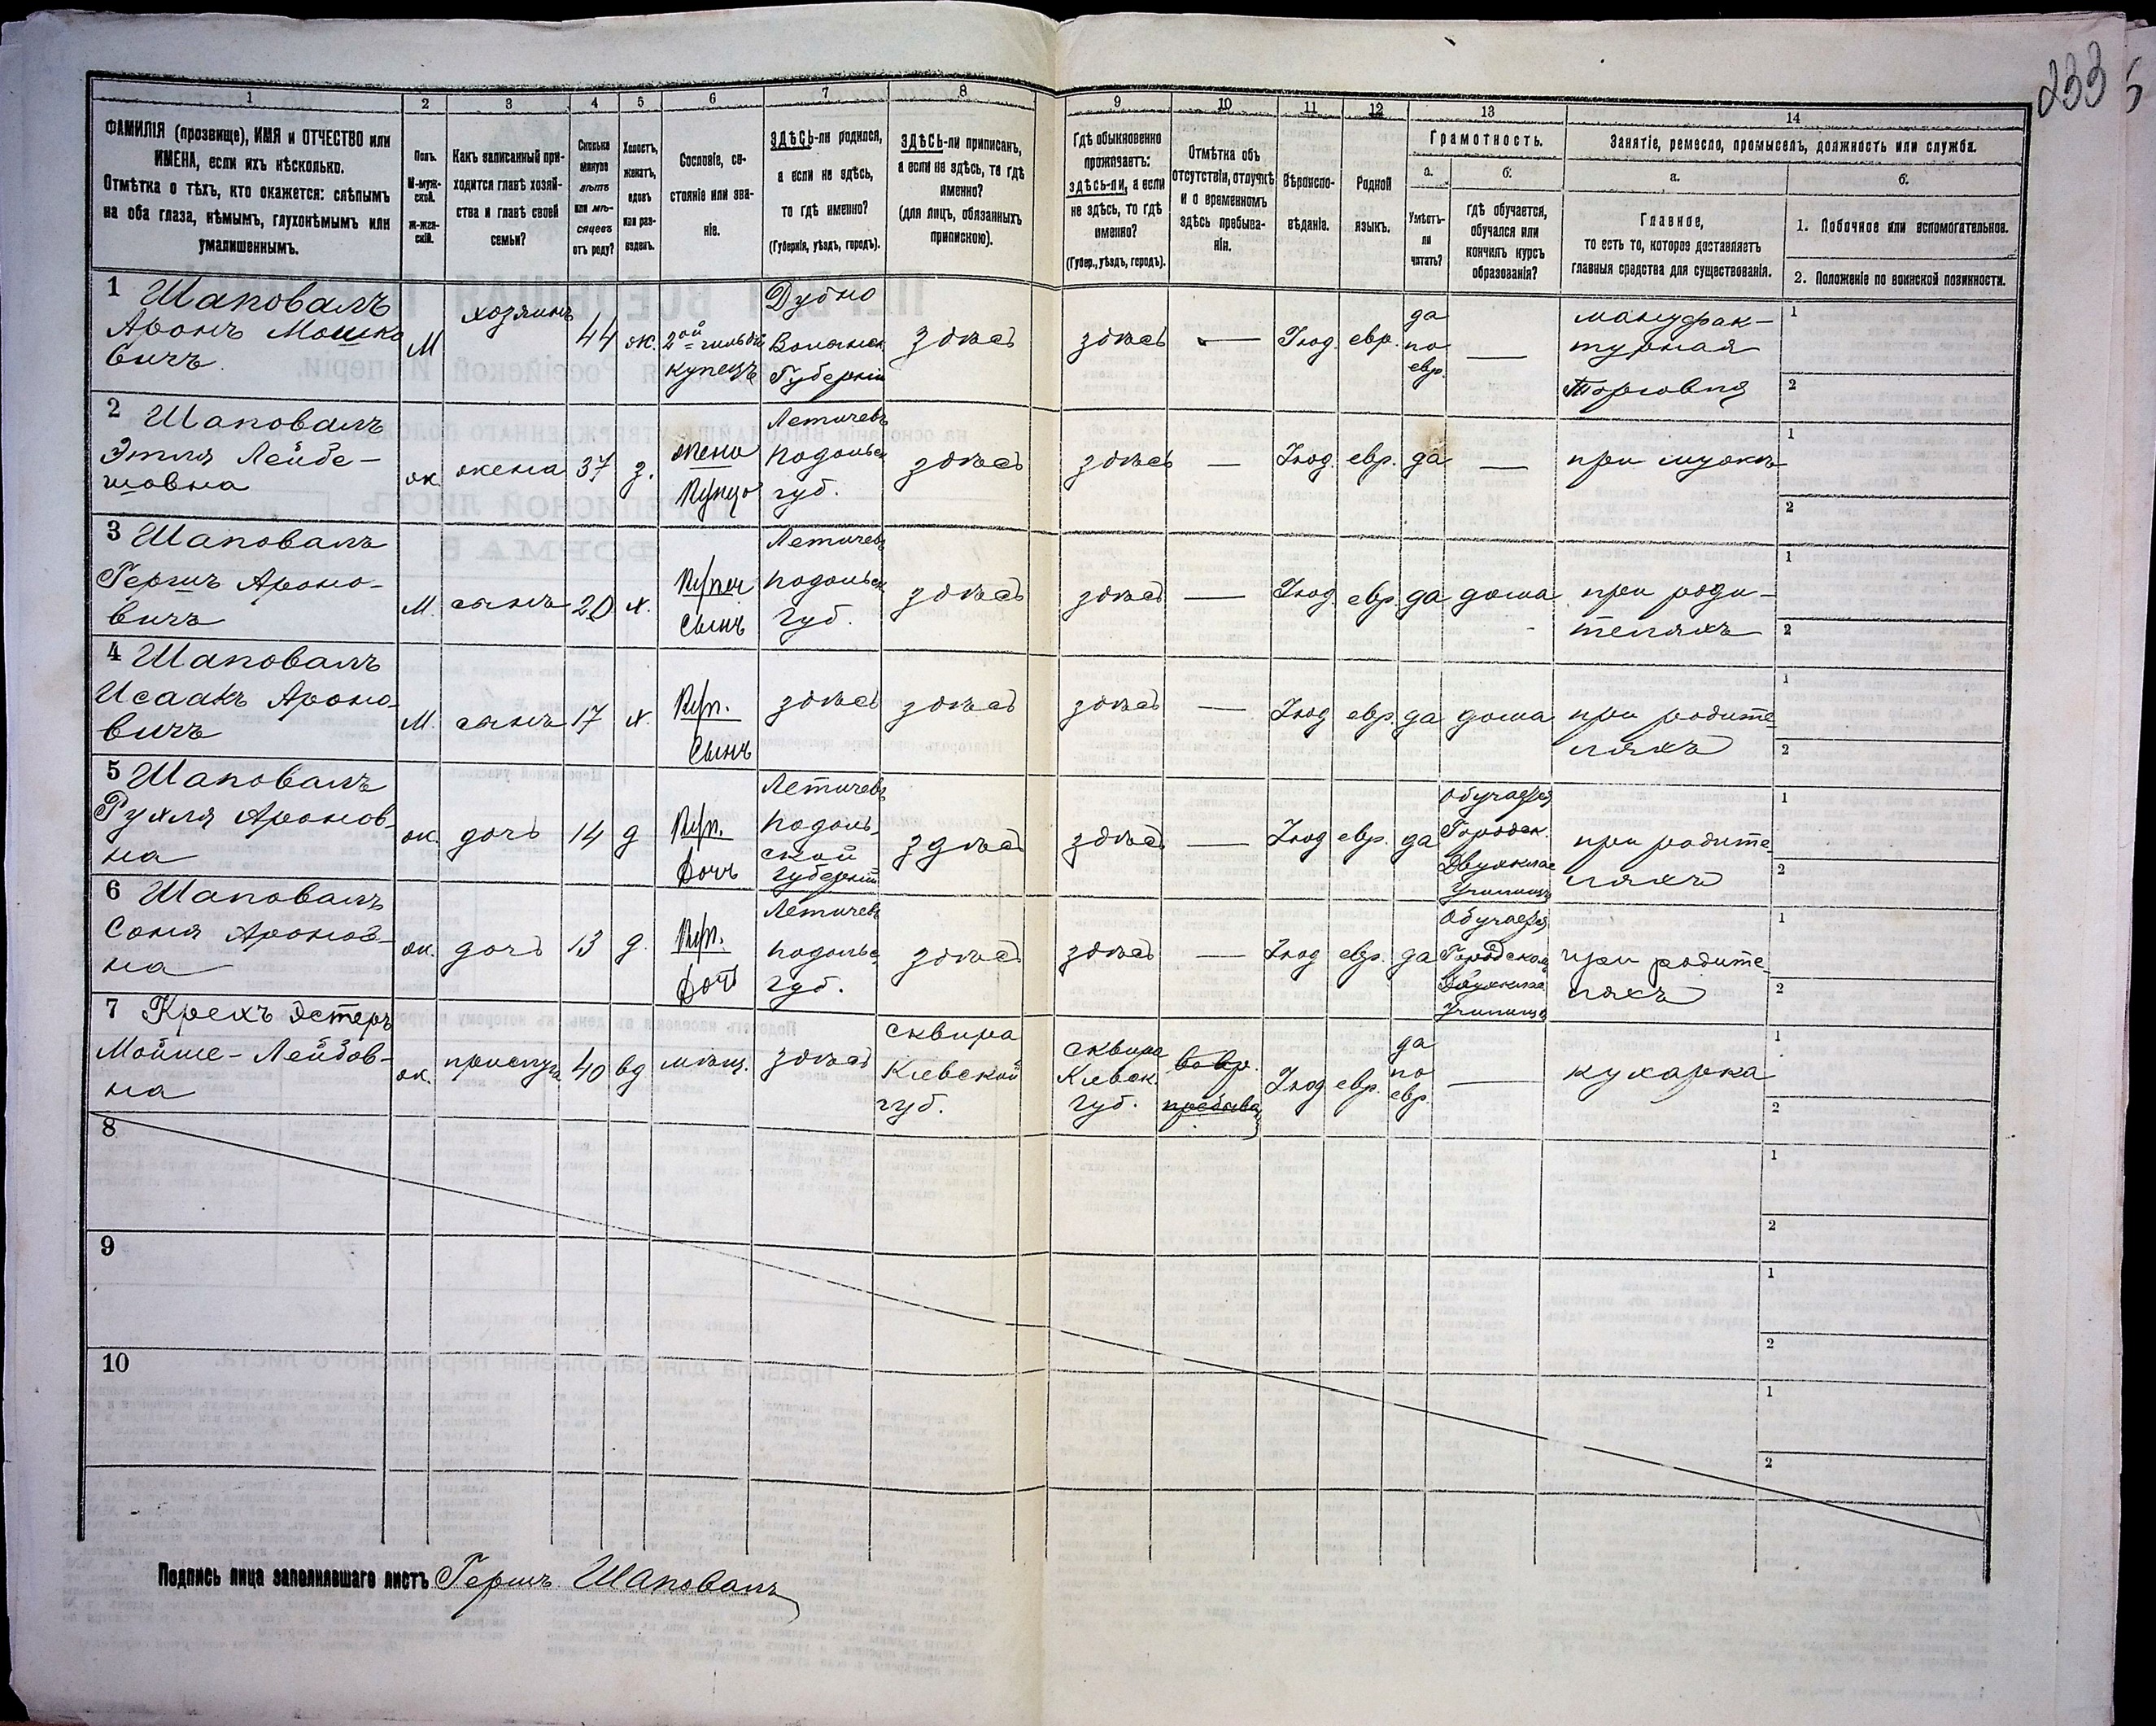 233
5
1
2
3
4
5
6
7
8
9
10
11
12
13
14
ФАМИЛІЯ (прозвище), ИМЯ и ОТЧЕСТВО или
ИМЕНА, если ихъ нѣсколько.
Отмѣтка о тѣхъ, кто окажется: слѣпымъ
на оба глаза, нѣмымъ, глухонѣмымъ или
умалишеннымъ.
Полъ.
М-муж-
ской.
ж-жен-
скій.
Какъ записанный при-
ходится главѣ хозяй-
ства и главѣ своей
семьи?
Сколько
минуло
лѣтъ
или мѣ-
сяцевъ
отъ роду?
Холостъ,
женатъ,
вдовъ
или раз-
веденъ.
Сословіе, со-
стояніе или зва-
ніе.
ЗДѢСЬ-ли родился,
а если не здѣсь,
то гдѣ именно?
(Губернія, уѣздъ, городъ).
ЗДѢСЬ-ли приписанъ,
а если не здѣсь, то гдѣ
именно?
(для лицъ, обязанныхъ
припискою).
Гдѣ обыкновенно
проживаетъ:
здѣсь-ли, а если
не здѣсь, то гдѣ
именно?
(Губер., уѣздъ, городъ).
Отмѣтка объ
отсутствіи, отлучкѣ
и о временномъ
здѣсь пребыва-
ніи.
Вѣроиспо-
вѣданіе.
Родной
языкъ.
Грамотность.
а.
Умѣетъ-
ли
читать?
б.
гдѣ обучается,
обучался или
кончилъ курсъ
образованія?
Занятіе, ремесло, промыселъ, должность или служба.
а.
Главное,
то есть то, которое доставляетъ
главныя средства для существованія.
б.
1. Побочное или вспомогательное.
2. Положеніе по воинской повинности.
1 Шаповалъ
Аронъ Мошко
вичъ
М
хозяинъ
44
ж.
2ой гильдіи
купецъ
Дубно
Волынск
Губерніи
здѣсь
здѣсь
—
Іюд.
евр.
да
по
евр.
—
мануфак-
турная
Торговля
1
2
2 Шаповалъ
Этля Лейбе-
шовна
ж
жена
37
з.
жена
Купца
Летичевъ
Подольск
губ.
здѣсь
здѣсь
—
Іюд.
евр.
да
—
при мужѣ
1
2
3 Шаповалъ
Гершъ Ароно-
вичъ
М.
сынъ
20
х.
Купеч
Сынъ
Летичевъ
Подольск
Губ.
здѣсь
здѣсь
—
Іюд.
евр.
да
дома
при роди-
теляхъ
1
2
4 Шаповалъ
Исаакъ Ароно-
вичъ
М.
сынъ
17
х.
Куп.
Сынъ
здѣсь
здѣсь
здѣсь
—
Іюд
евр.
да
дома
при родите-
ляхъ
1
2
5 Шаповалъ
Рухля Аронов-
на
ж.
дочь
14
д
Куп.
Дочь
Летичевъ
Подоль-
ской
губерніи
здѣсь
здѣсь
—
Іюд
евр.
да
Обучается
Городск.
Двухклас
Училищѣ
при родите-
ляхъ
1
2
6 Шаповалъ
Соня Аронов-
на
ж.
дочь
13
д.
Куп.
Дочь
Летичевъ
Подольс.
губ.
здѣсь
здѣсь
—
Іюд
евр.
да
Обучается
Городском
Двухклас
Училищѣ
при родите-
ляхъ
1
2
7 Крехъ Эстеръ
Мойше-Лейбов-
на
ж.
прислуга
40
вд
мѣщ.
здѣсь
Сквира
Кіевской
губ.
Сквира
Кіевск.
Губ.
во вр.
пребыва
Іюд
евр.
да
по
евр.
—
кухарка
1
2
8
1
2
9
1
2
10
1
2
Подпись лица заполнявшаго листъ Гершъ Шаповалъ